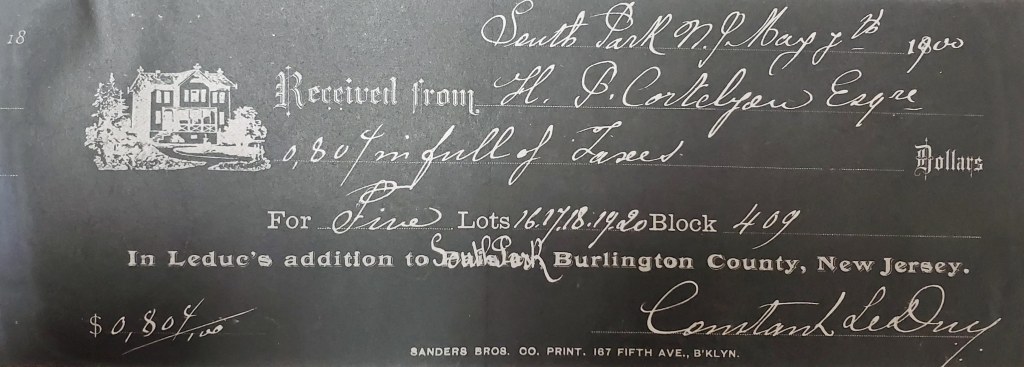 18
South Park N.J May 7th 1900
Received from H. P. Cortelyou Esqre
0,80¢ in full of Taxes Dollars
For Five Lots 16.17.18.19.20 Block 409
In Leduc's addition to South Park Burlington County, New Jersey.
$ 0,80¢/,00
Constant LeDuc
SANDERS BROS. CO. PRINT. 167 FIFTH AVE., B'KLYN.